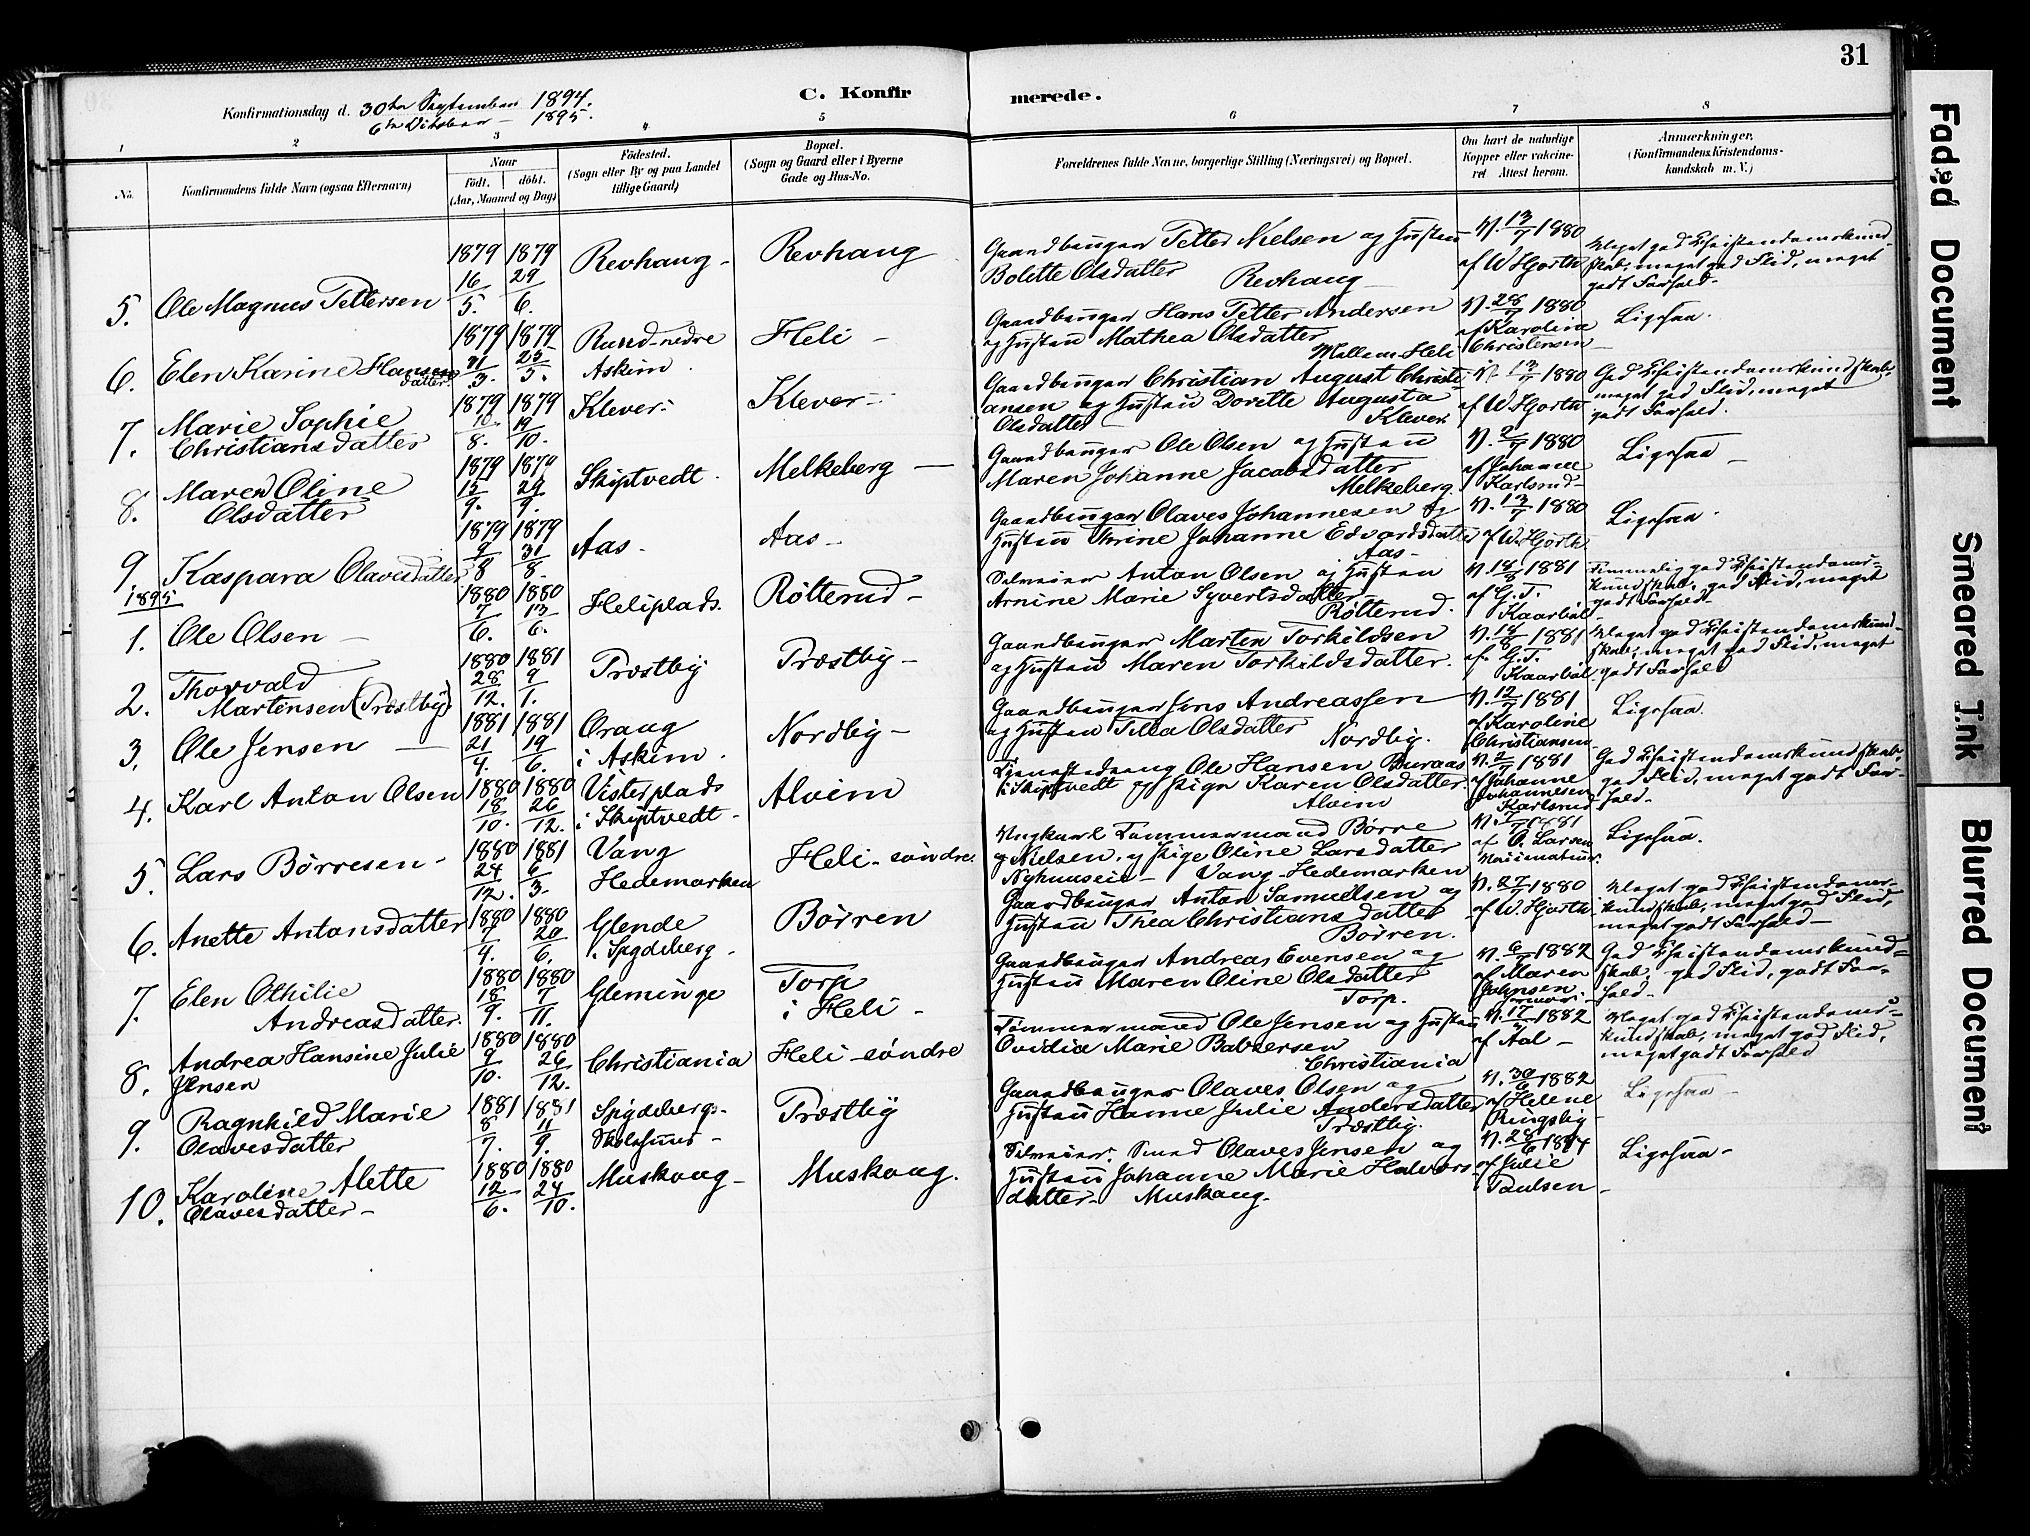 31
C. Konfirmerede.
Konfirmationsdag d. 30te September 1894.
6te Oktober — 1895.
1 2 3 4 5 6 7 8
No.
Konfirmandens fulde Navn (ogsaa Efternavn)
Naar
födt. döbt.
(Aar, Maaned og Dag)
Födested.
(Sogn eller By og paa Landet
tillige Gaard)
Bopæl.
(Sogn og Gaard eller i Byerne
Gade og Hus-No.
Forældrenes fulde Navne, borgerlige Stilling (Næringsvei) og Bopæl.
Om havt de naturlige
Kopper eller vakcine-
ret Attest herom.
Anmærkninger.
(Konfirmandens Kristendoms-
kundskab m. V.)
5. Ole Magnus Pettersen
1879 16/5. 1879 29/6.
Revhaug -
Revhaug
Gaardbruger Petter Nielsen og Hustru
Bolette Olsdatter
Revhaug
V. 13/7 1880
af W Hjorth
Meget god Christendomskund-
skab, meget god Flid, meget
godt Forhold.
6. Elen Karine Hansen
datter.
1879 1879
Rund-nedre
Askim.
Heli -
Gaardbruger Hans Petter Andersen
og Hustru Mathea Olsdatter
Mellem-Heli
V. 28/7 1880
af Karoline
Christensen
Ligesaa.
7. Marie Sophie
Christiansdatter
1879 /8. 1879 19/10.
Klever -
Klever -
Gaardbruger Christian August Christi-
ansen og Hustru Dorette Augusta
Olsdatter
Klever
V. 13/7 1880
af W. Hjorth
God Christendomskundskab,
meget god Flid, meget
godt Forhold.
8. Maren Oline
Olsdatter
1879 15/9. 1879 29/9.
Skiptvedt.
Melkeberg —
Gaardbruger Ole Olsen og Hustru
Maren Johanne Jacobsdatter
Melkeberg.
V. 2/7 1880
af Johanne
Karlsrud
Ligesaa —
9. Kaspara Olavesdatter
1879 9/8 1879 31/8.
Aas -
Aas -
Gaardbruger Olaves Johannesen og
Hustru Thrine Johanne Edvardsdatter
Aas -
V. 13/7 1880
af W. Hjorth
Ligesaa.
1895
1. Ole Olsen —
1880 7/6. 1880 13/6.
Heliplads.
Rötterud -
Selveier Anton Olsen og Hustru
Arnine Marie Syvertsdatter
Rötterud.
V. 18/8 1881
af G. T.
Kaarböl
Temmelig god Christendoms-
kundskab, god Flid, meget
godt Forhold.
2. Thorvald
Martinsen (Præstby)
1880 28/12. 1881 9/1.
Præstby
Præstby -
Gaardbruger Marten Torkildsen
og Hustru Maren Torkildsdatter.
V. 18/8 1881
af G. T.
Kaarböl
Meget god Christendomskund-
skab, meget god Flid, meget
godt Forhold
3. Ole Jensen —
1881 21/4. 1881 19/6.
Oraug
i Askim.
Nordby -
Gaardbruger Jens Andreassen
og Hustru Tilla Olsdatter
Nordby.
V. 12/7 1881
af Karoline
Christiansen
Ligesaa.
4. Karl Anton Olsen
1880 18/10. 1880 26/12.
Visterplads
i Skiptvedt -
Alvim
Ole Hansen Buraas
i Skiptvedt og Pige Karen Olsdatter.
Alvim
V. 2/7 1881
af Johanne
Johannesen
Karlsrud
God Christendomskundskab,
god Flid, meget godt For-
hold.
5. Lars Börresen -
1880 24/12. 1881 6/3.
Vang
Hedemarken
Heli - söndre.
Ungkarl Tömmermand Börre
Nielsen og Pige Oline Larsdatter
Vang - Hedemarken
1881
af O. Larsen
Ligesaa.
6. Anette Antonsdatter
1880 7/4. 1880 20/6.
Glende
i Spydeberg -
Börren
Gaardbruger Anton Samuelsen og
Hustru Thea Christiansdatter
Börren.
V. 27/7 1880
af W. Hjorth
Meget god Christendoms-
kundskab, meget god Flid,
meget godt Forhold
7. Elen Othilie
Andreasdatter.
1880 18/9. 1880 7/11.
Gleminge
Torp
i Heli -
Gaardbruger Andreas Evensen og
Hustru Maren Oline Olsdatter
Torp.
V. 6/7 1882
af Maren
Johnsen
God Christendomskund-
skab, god Flid, godt For-
hold.
8. Andrea Hansine Julie
Jensen
1880 9/10. 1880 26/12.
Christiania
Heli - söndre
Tömmermand Ole Jensen og Hustru
Ovidia Marie Babtersen
Christiania
V. 17/7 1882
af Aal -
Meget god Christendoms-
kundskab, meget god Flid,
meget godt Forhold
9. Ragnhild Marie
Olavesdatter
1881 8/7. 1881 11/9.
Spydebergs-
Skolehuus -
Præstby
Gaardbruger Olaves Olsen og
Hustru Hanne Julie Andersdatter
Præstby.
V. 30/6 1882
af Helene
Ringsby
Ligesaa -
10. Karoline Alette
Olavesdatter -
1880 12/6. 1880 24/10.
Muskaug -
Muskaug.
Selveier Smed Olaves Jensen og
Hustru Johanne Marie Halvors-
datter - Muskaug.
V. 28/6 1884
af Julie
Paulsen -
Ligesaa -
Faded Document
Smeared Ink
Blurred Document